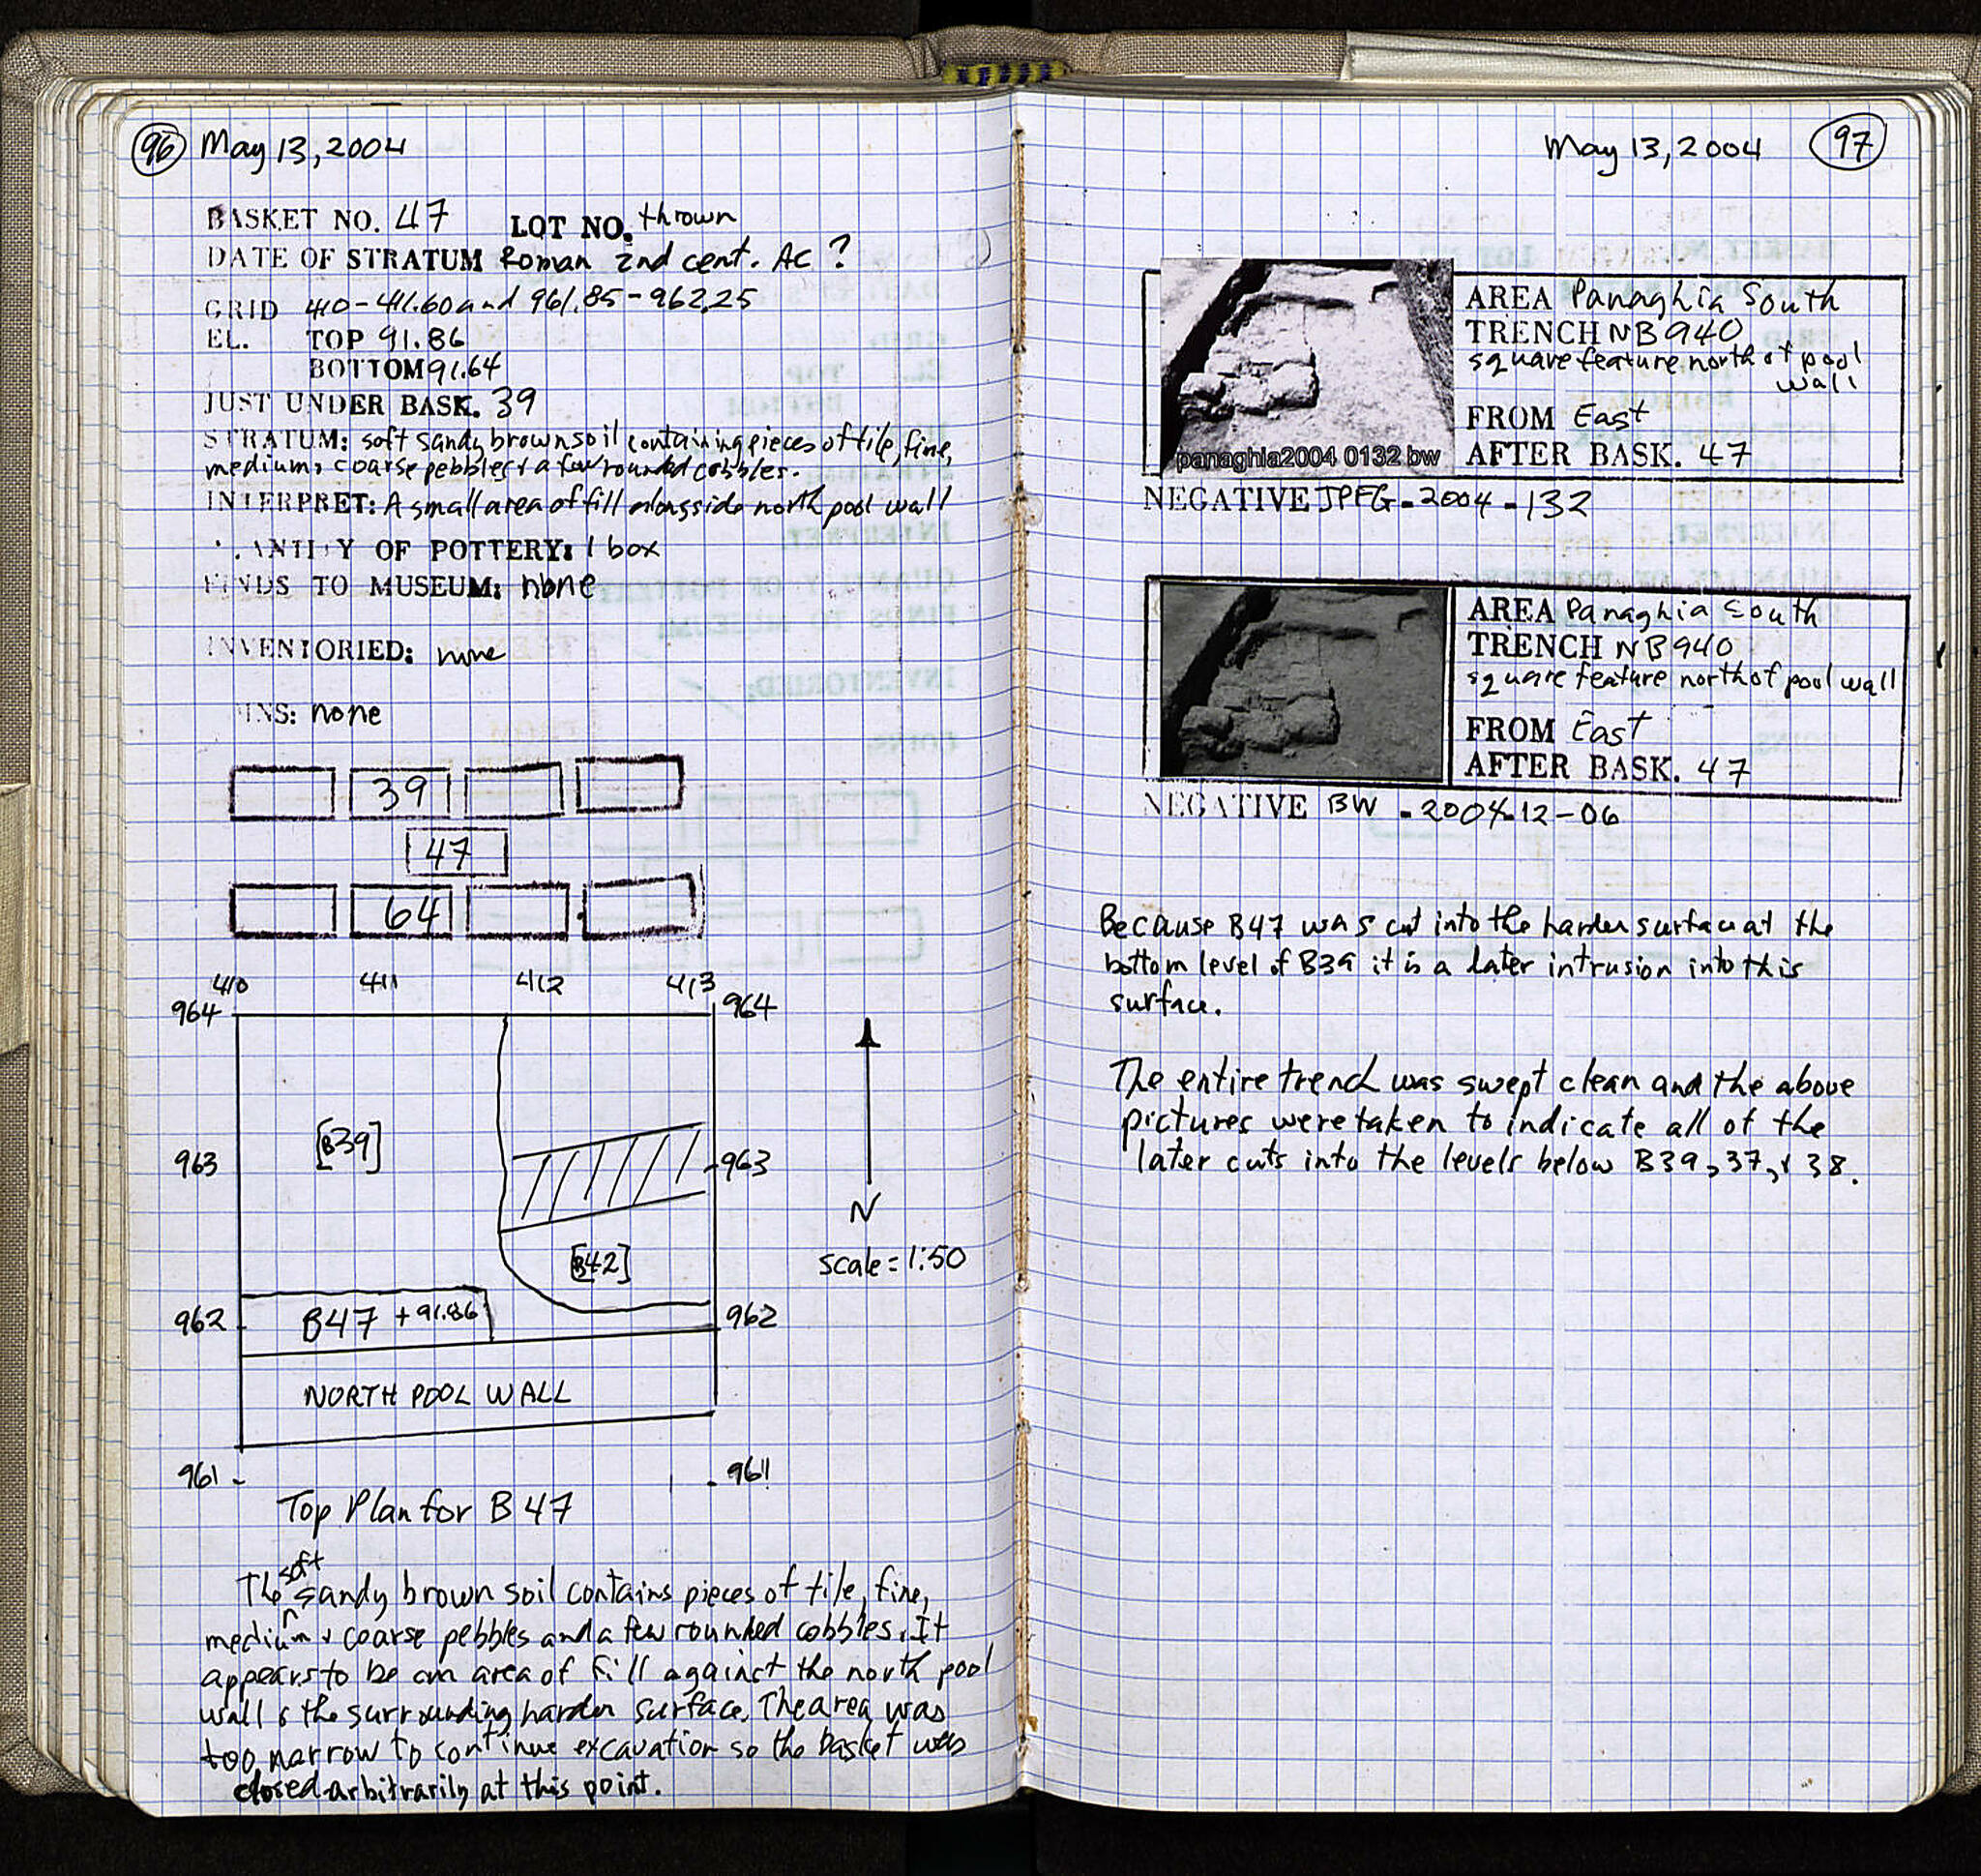 96 May 13, 2004
BASKET NO. 47 LOT NO. thrown
DATE OF STRATUM Roman 2nd cent. AC ?
GRID 410-411.60 and 961.85-962.25
EL. TOP 91.86
BOTTOM 91.64
JUST UNDER BASK. 39
STRATUM: soft sandy brown soil containing pieces of tile, fine,
medium, coarse pebbles & a few rounded cobbles.
INTERPRET: A small area of fill alongside north pool wall
QUANTITY OF POTTERY: 1 box
FINDS TO MUSEUM: none
INVENTORIED: none
COINS: none
39
47
64
410 411 412 413
964 964
[B39]
963 963
N
[B42]
scale = 1:50
B47 + 91.86
962 962
NORTH POOL WALL
961 961
Top Plan for B47
soft
The ^ sandy brown soil contains pieces of tile, fine,
medium & coarse pebbles and a few rounded cobbles. It
appears to be an area of fill against the north pool
wall & the surrounding harder surface. The area was
too narrow to continue excavation so the basket was
closed arbitrarily at this point.
May 13, 2004 97
AREA Panaghia South
TRENCH NB940
square feature north of pool
wall
FROM East
AFTER BASK. 47
panaghia2004 0132 bw
NEGATIVE JPEG-2004-132
AREA Panaghia South
TRENCH NB940
square feature north of pool wall
FROM East
AFTER BASK. 47
NEGATIVE BW - 2004-12-06
Because B47 was cut into the harder surface at the
bottom level of B39 it is a later intrusion into this
surface.
The entire trench was swept clean and the above
pictures were taken to indicate all of the
later cuts into the levels below B39, 37, & 38.